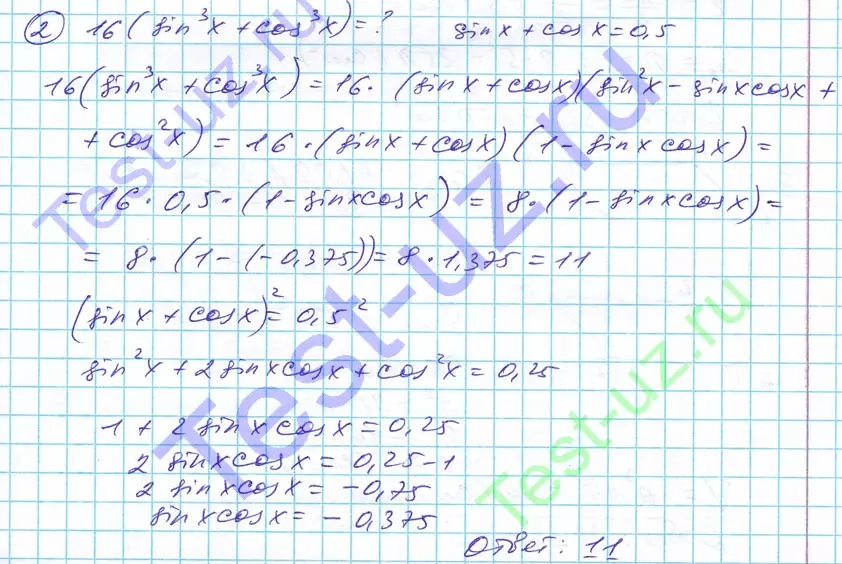 ② 16(sin³x + cos³x) = ? sin x + cos x = 0,5
16(sin³x + cos³x) = 16 · (sin x + cos x)(sin²x - sin x cos x +
+ cos²x) = 16 · (sin x + cos x)(1 - sin x cos x) =
= 16 · 0,5 · (1 - sin x cos x) = 8 · (1 - sin x cos x) =
= 8 · (1 - (-0,375)) = 8 · 1,375 = 11
(sin x + cos x)² = 0,5²
sin²x + 2 sin x cos x + cos²x = 0,25
1 + 2 sin x cos x = 0,25
2 sin x cos x = 0,25 - 1
2 sin x cos x = -0,75
sin x cos x = - 0,375
Ответ: 11
Test-uz.ru
Test-uz.ru
Test-uz.ru